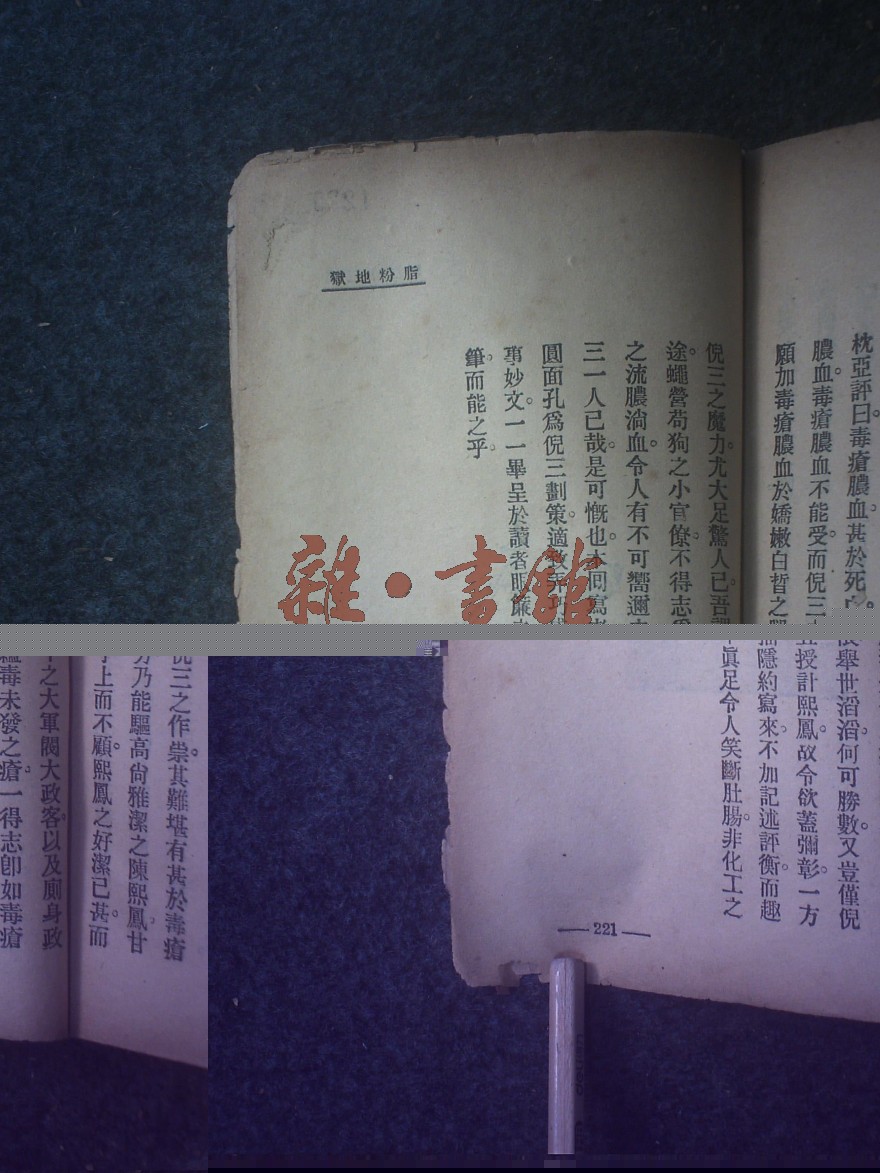 脂粉地獄
枕亞評曰。毒瘡膿血。甚於死
膿血。毒瘡膿血不能受。而倪三
願加毒瘡膿血於嬌嫩白皙之
倪三之魔力。尤大足驚人已。吾
途。蠅營苟狗之小官僚。不得志
之流膿淌血。令人有不可嚮邇
三一人已哉。是可慨也。本回寫
圓面孔爲倪三劃策。適教弄巧
事妙文。一一畢呈於讀者眼簾
筆而能之乎。
雜·書館
倪三之作祟。其難堪有甚於毒瘡
乃能驅高尙雅潔之陳熙鳳。甘
上而不顧。熙鳳之好潔已甚。而
之大軍閥大政客。以及廁身政
蘊毒未發之瘡。一得志卽如毒瘡
舉世滔滔。何可勝數。又豈僅倪
授計熙鳳。故令欲蓋彌彰。一方
隱約寫來。不加記述評衡。而趣
眞足令人笑斷肚腸。非化工之
— 221 —